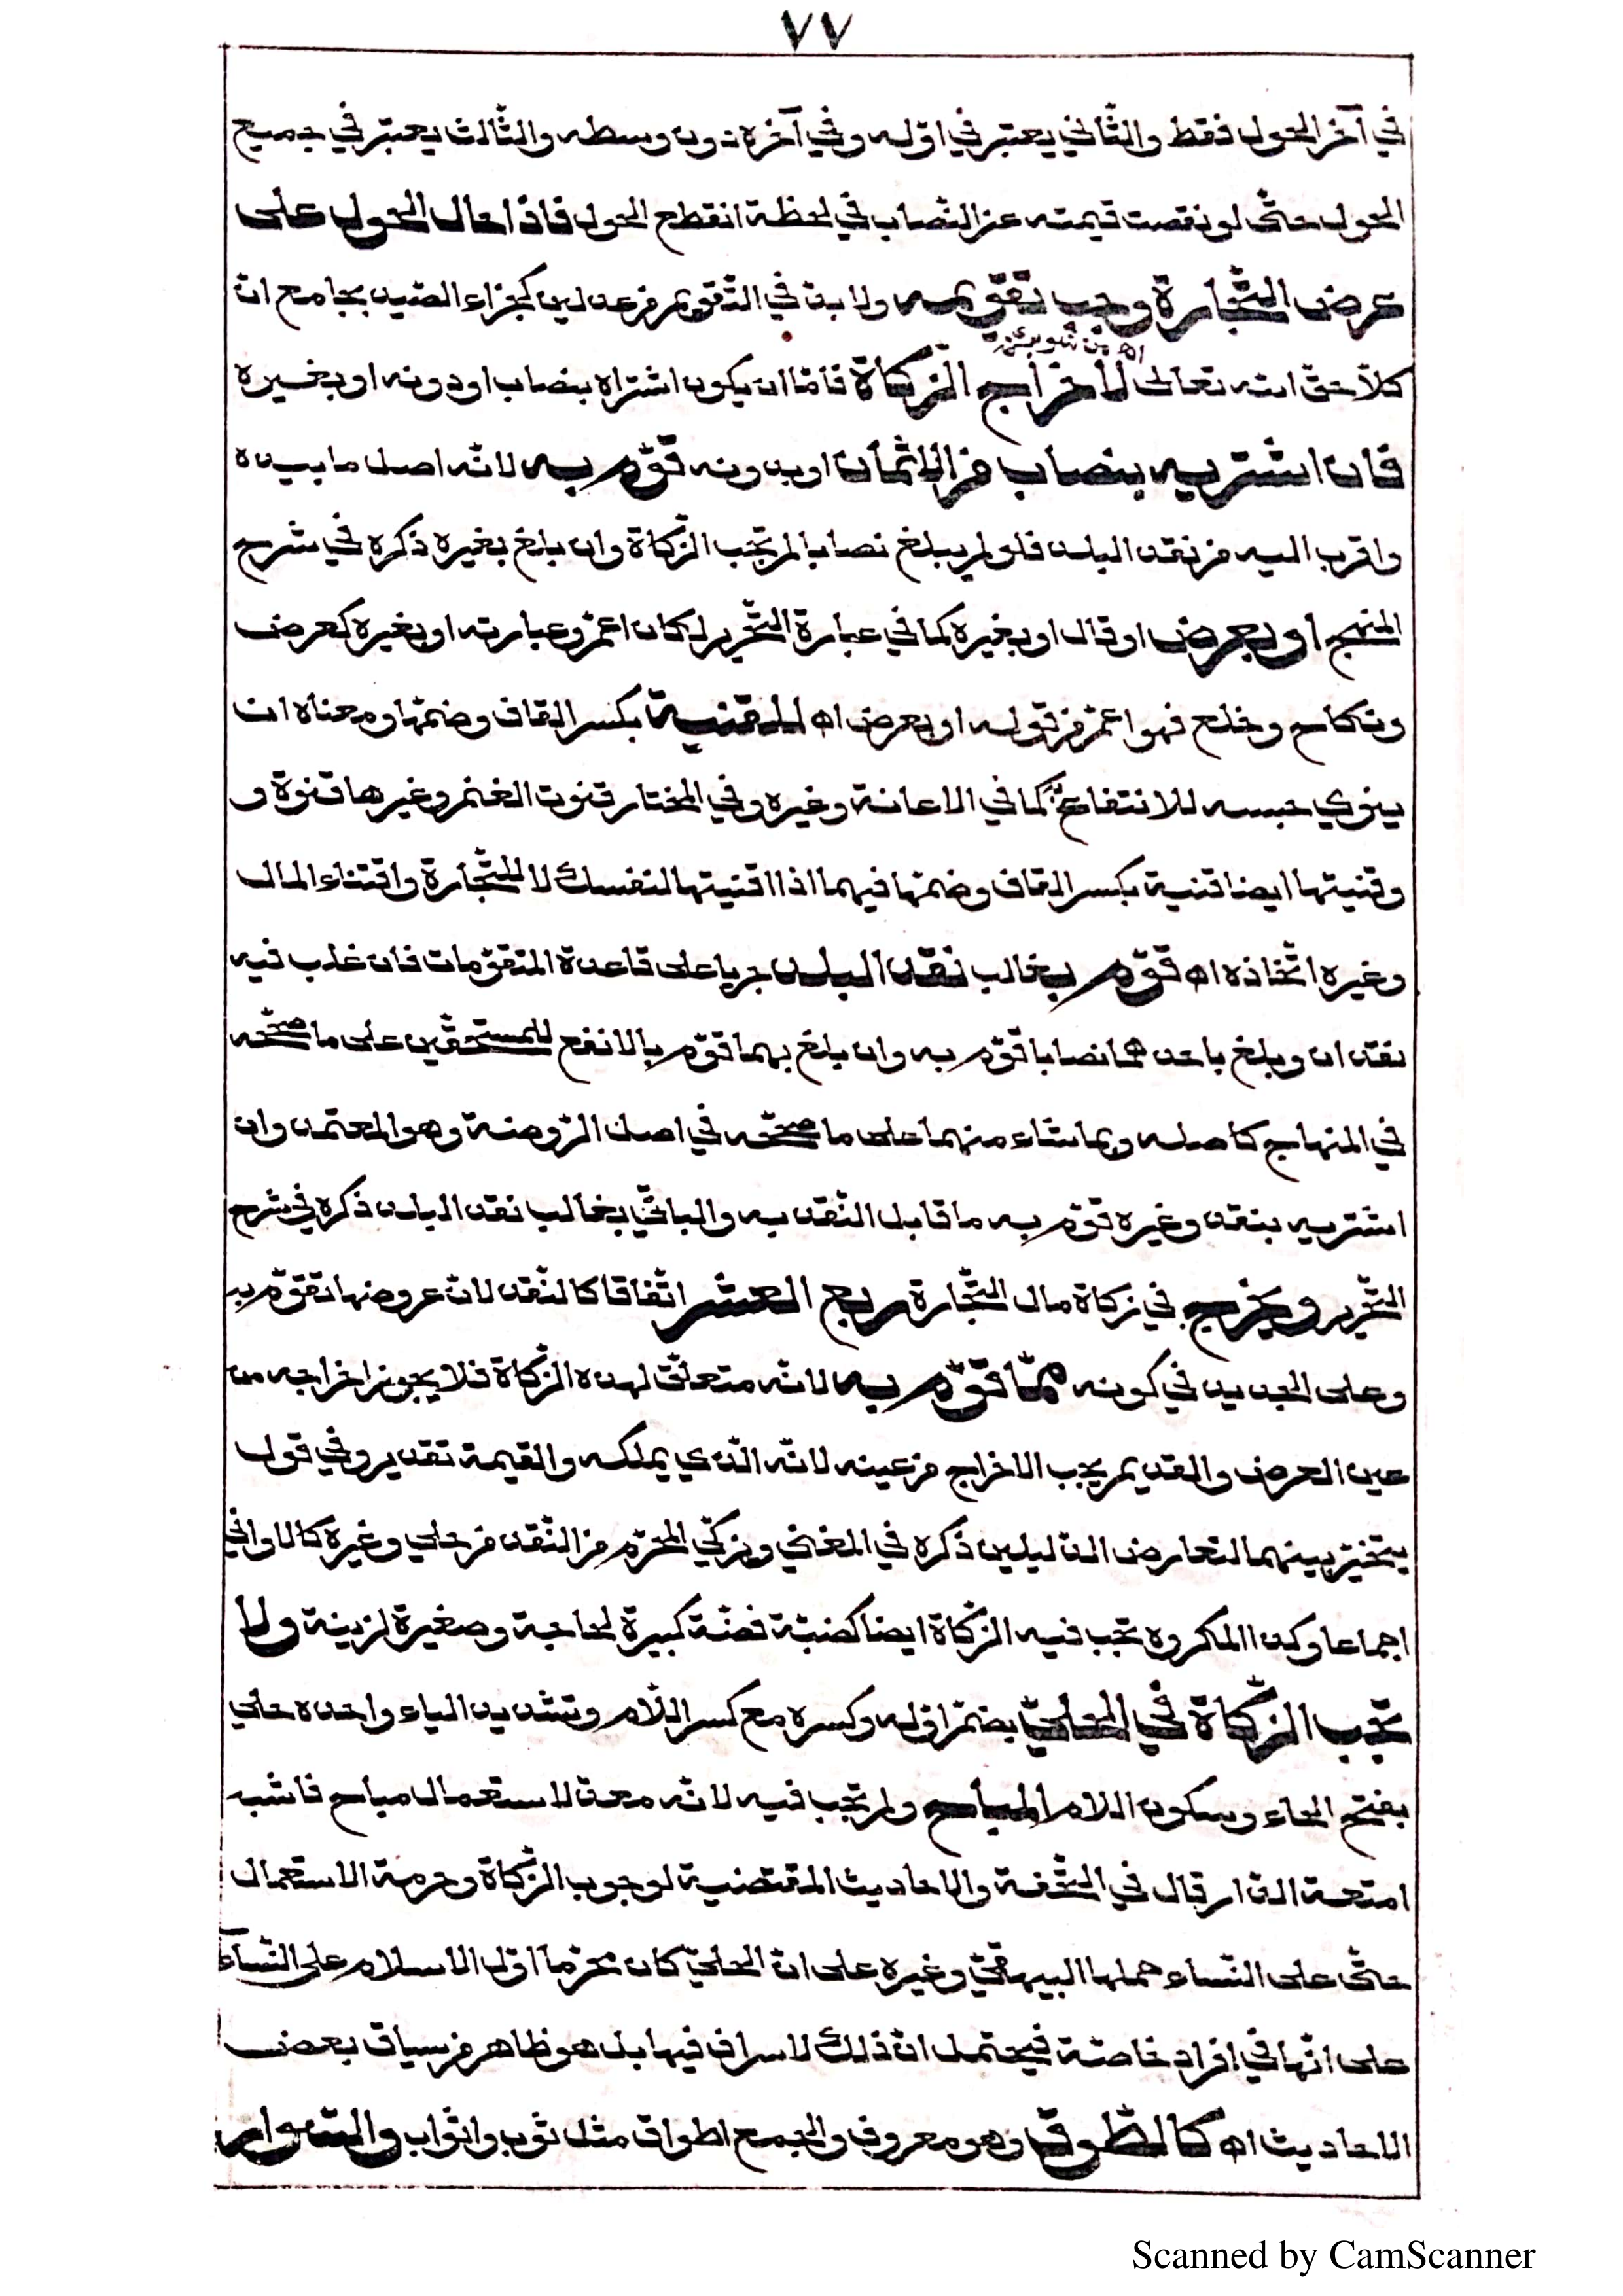 ٧٧
في آخر الحول فقط والثاني يعتبر في اوّله وفي آخره دون وسطه والثالث يعتبر في جميع
الحول حتّى لو نقصت قيمته عن النّصاب في لحظة انقطع الحول فاذا حال الحول على
عرض التّجارة وجب تقويمه ولا بدّ في التّقويم من عدلين كجزاء الصّيد بجامع انّ
اه من شوبري
كلّا حقّ الله تعالى لأخراج الزّكاة فامّا ان يكون اشتراه بنصاب او دونه او بغيره
فان اشتريه بنصاب من الاثمان او بدونه قوّم به لانّه اصل ما بيده
واقرب اليه من نقد البلد فلو لم يبلغ نصابا لم تجب الزّكاة وان بلغ بغيره ذكره في شرح
المنهج او بعرض او قال او بغيره كما في عبارة التّحرير لكان اعمّ وعبارته او بغيره كعرض
ونكاح وخلع فهو اعمّ من قوله او بعرض اه للقنية بكسر القاف وضمّها ومعناه ان
ينوي حبسه للانتفاع به كما في الاعانة وغيره وفي المختار قنوت الغنم وغيرها قنوة و
وقنيتها ايضا قنية بكسر القاف وضمّها فيهما اذا اقنيتها لنفسك لا للتّجارة واقتناء المال
وغيره اتّخاذه اه قوّم بغالب نقد البلد جريا على قاعدة المتقوّمات فان غلب فيه
نقدان وبلغ باحدهما نصابا قوّم به وان بلغ بهما قوّم بالانفع للمستحقّين على ما صحّحه
في المنهاج كاصله وبما شاء منهما على ما صحّحه في اصل الرّوضة وهو المعتمد وان
اشتريه بنقد وغيره قوّم به ما قابل النّقد به والباقي بغالب نقد البلد ذكره في شرح
التّحرير ويخرج في زكاة مال التّجارة ربع العشر اتّفاقا كالنّقد لانّ عروضها تقوّم به
وعلى الجديد في كونه ممّا قوّم به لانّه متعلّق لهذه الزّكاة فلا يجوز اخراجه من
عين العرض والقديم يجب الاخراج من عينه لانّه الّذي يملكه والقيمة تقدير وفي قول
يتخيّر بينهما لتعارض الدّليلين ذكره في المغني ويزكّي المحرّم من النّقد من حلي وغيره كالاواني
اجماعا وكذا المكروه تجب فيه الزّكاة ايضا كضبّة فضّة كبيرة لحاجة وصغيرة لزينة ولا
تجب الزّكاة في الحليّ بضمّ اوّله وكسره مع كسر اللّام وتشديد الياء واحده حلي
بفتح الحاء وسكون اللام المباح ولم تجب فيه لانّه معدّ لاستعمال مباح فاشبه
امتعة الدّار قال في التّحفة والاحاديث المقتضية لوجوب الزّكاة وحرمة الاستعمال
حتّى على النّساء حملها البيهقيّ وغيره على انّ الحليّ كان محرّما اوّل الاسلام على النّسآء
على انّها في افراد خاصّة فيحتمل انّ ذلك لاسراف فيها بل هو ظاهر من سياق بعض
الاحاديث اه كالطّوق وهو معروف والجمع اطواق مثل ثوب واثواب والسّوار
Scanned by CamScanner